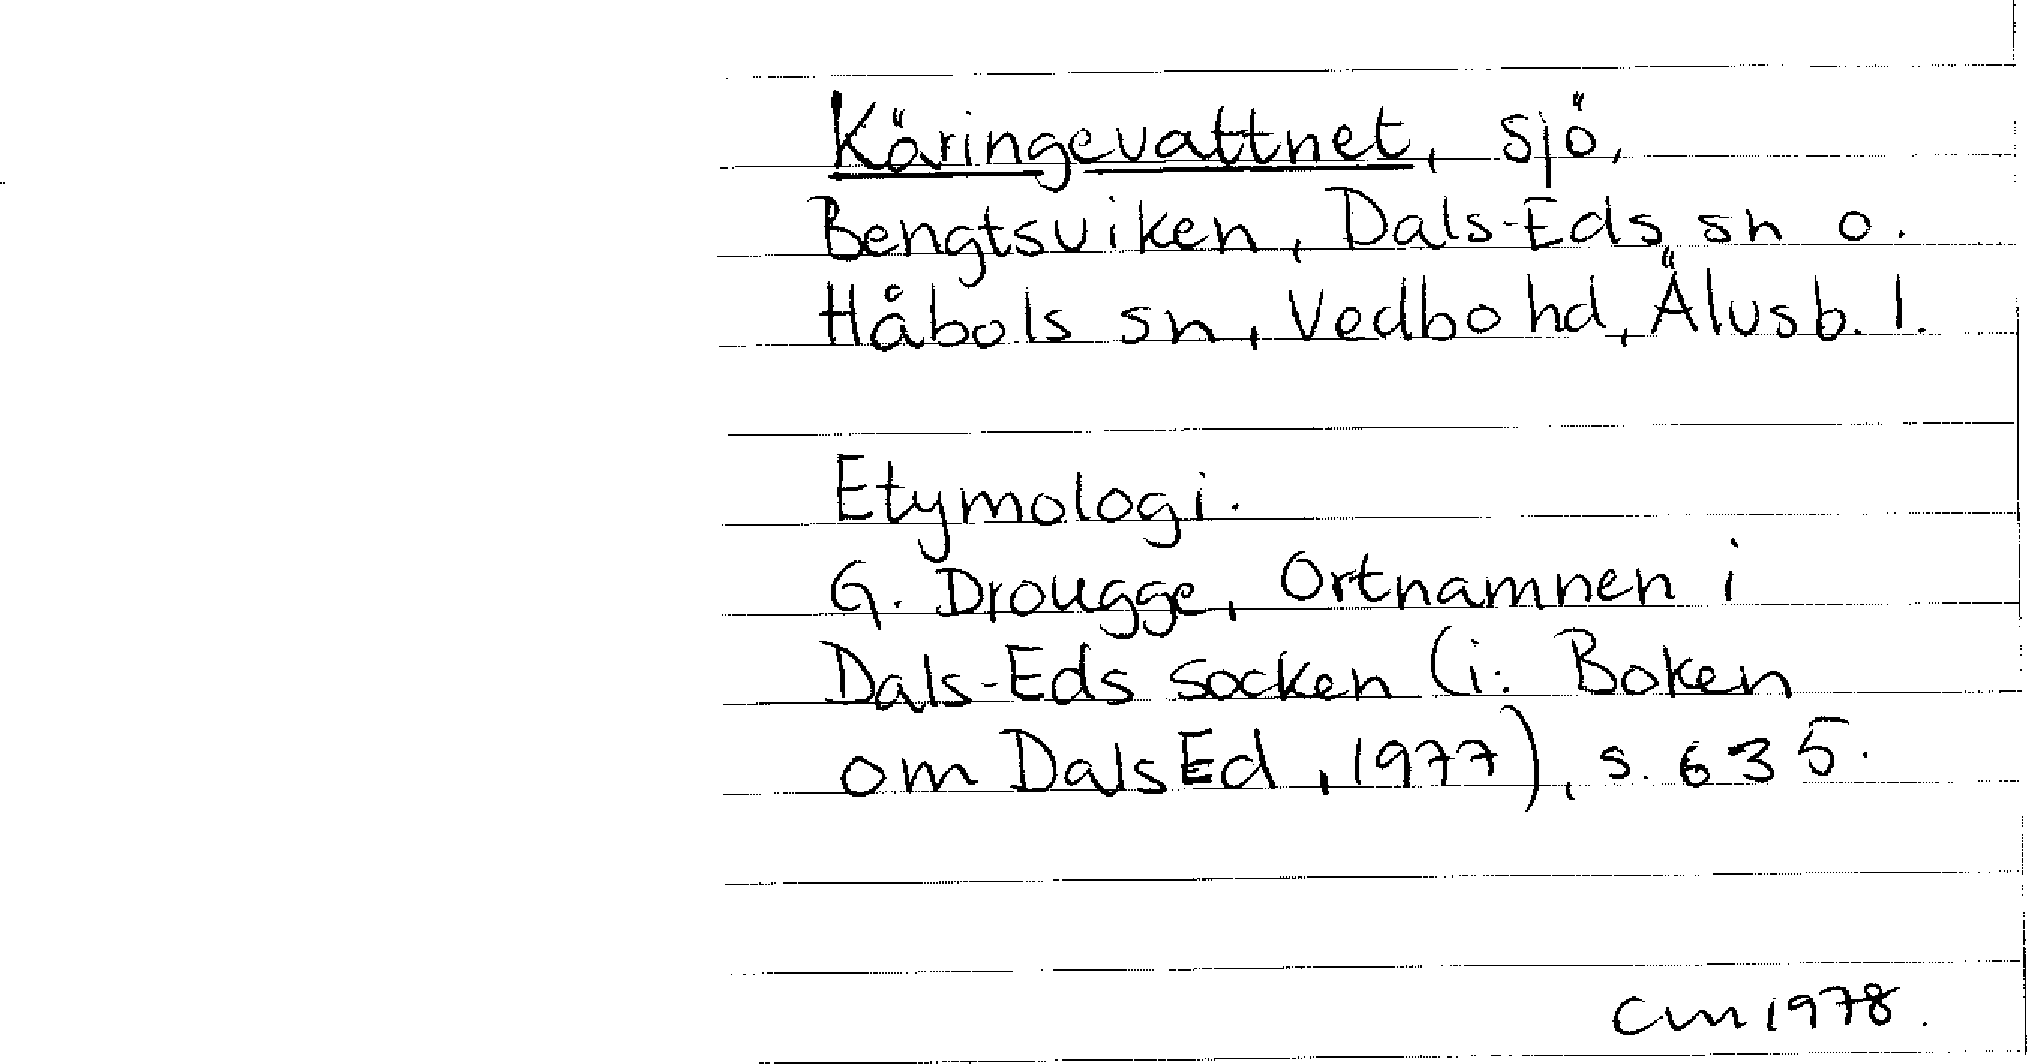 Käringevattnet, sjö,
Bengtsviken, Dals-Eds sn o.
Håbols sn, Vedbo hd, Älvsb. l.
Etymologi.
G. Drougge, Ortnamnen i
Dals-Eds socken (i: Boken
om Dals Ed, 1977), s. 635.
CM 1978.